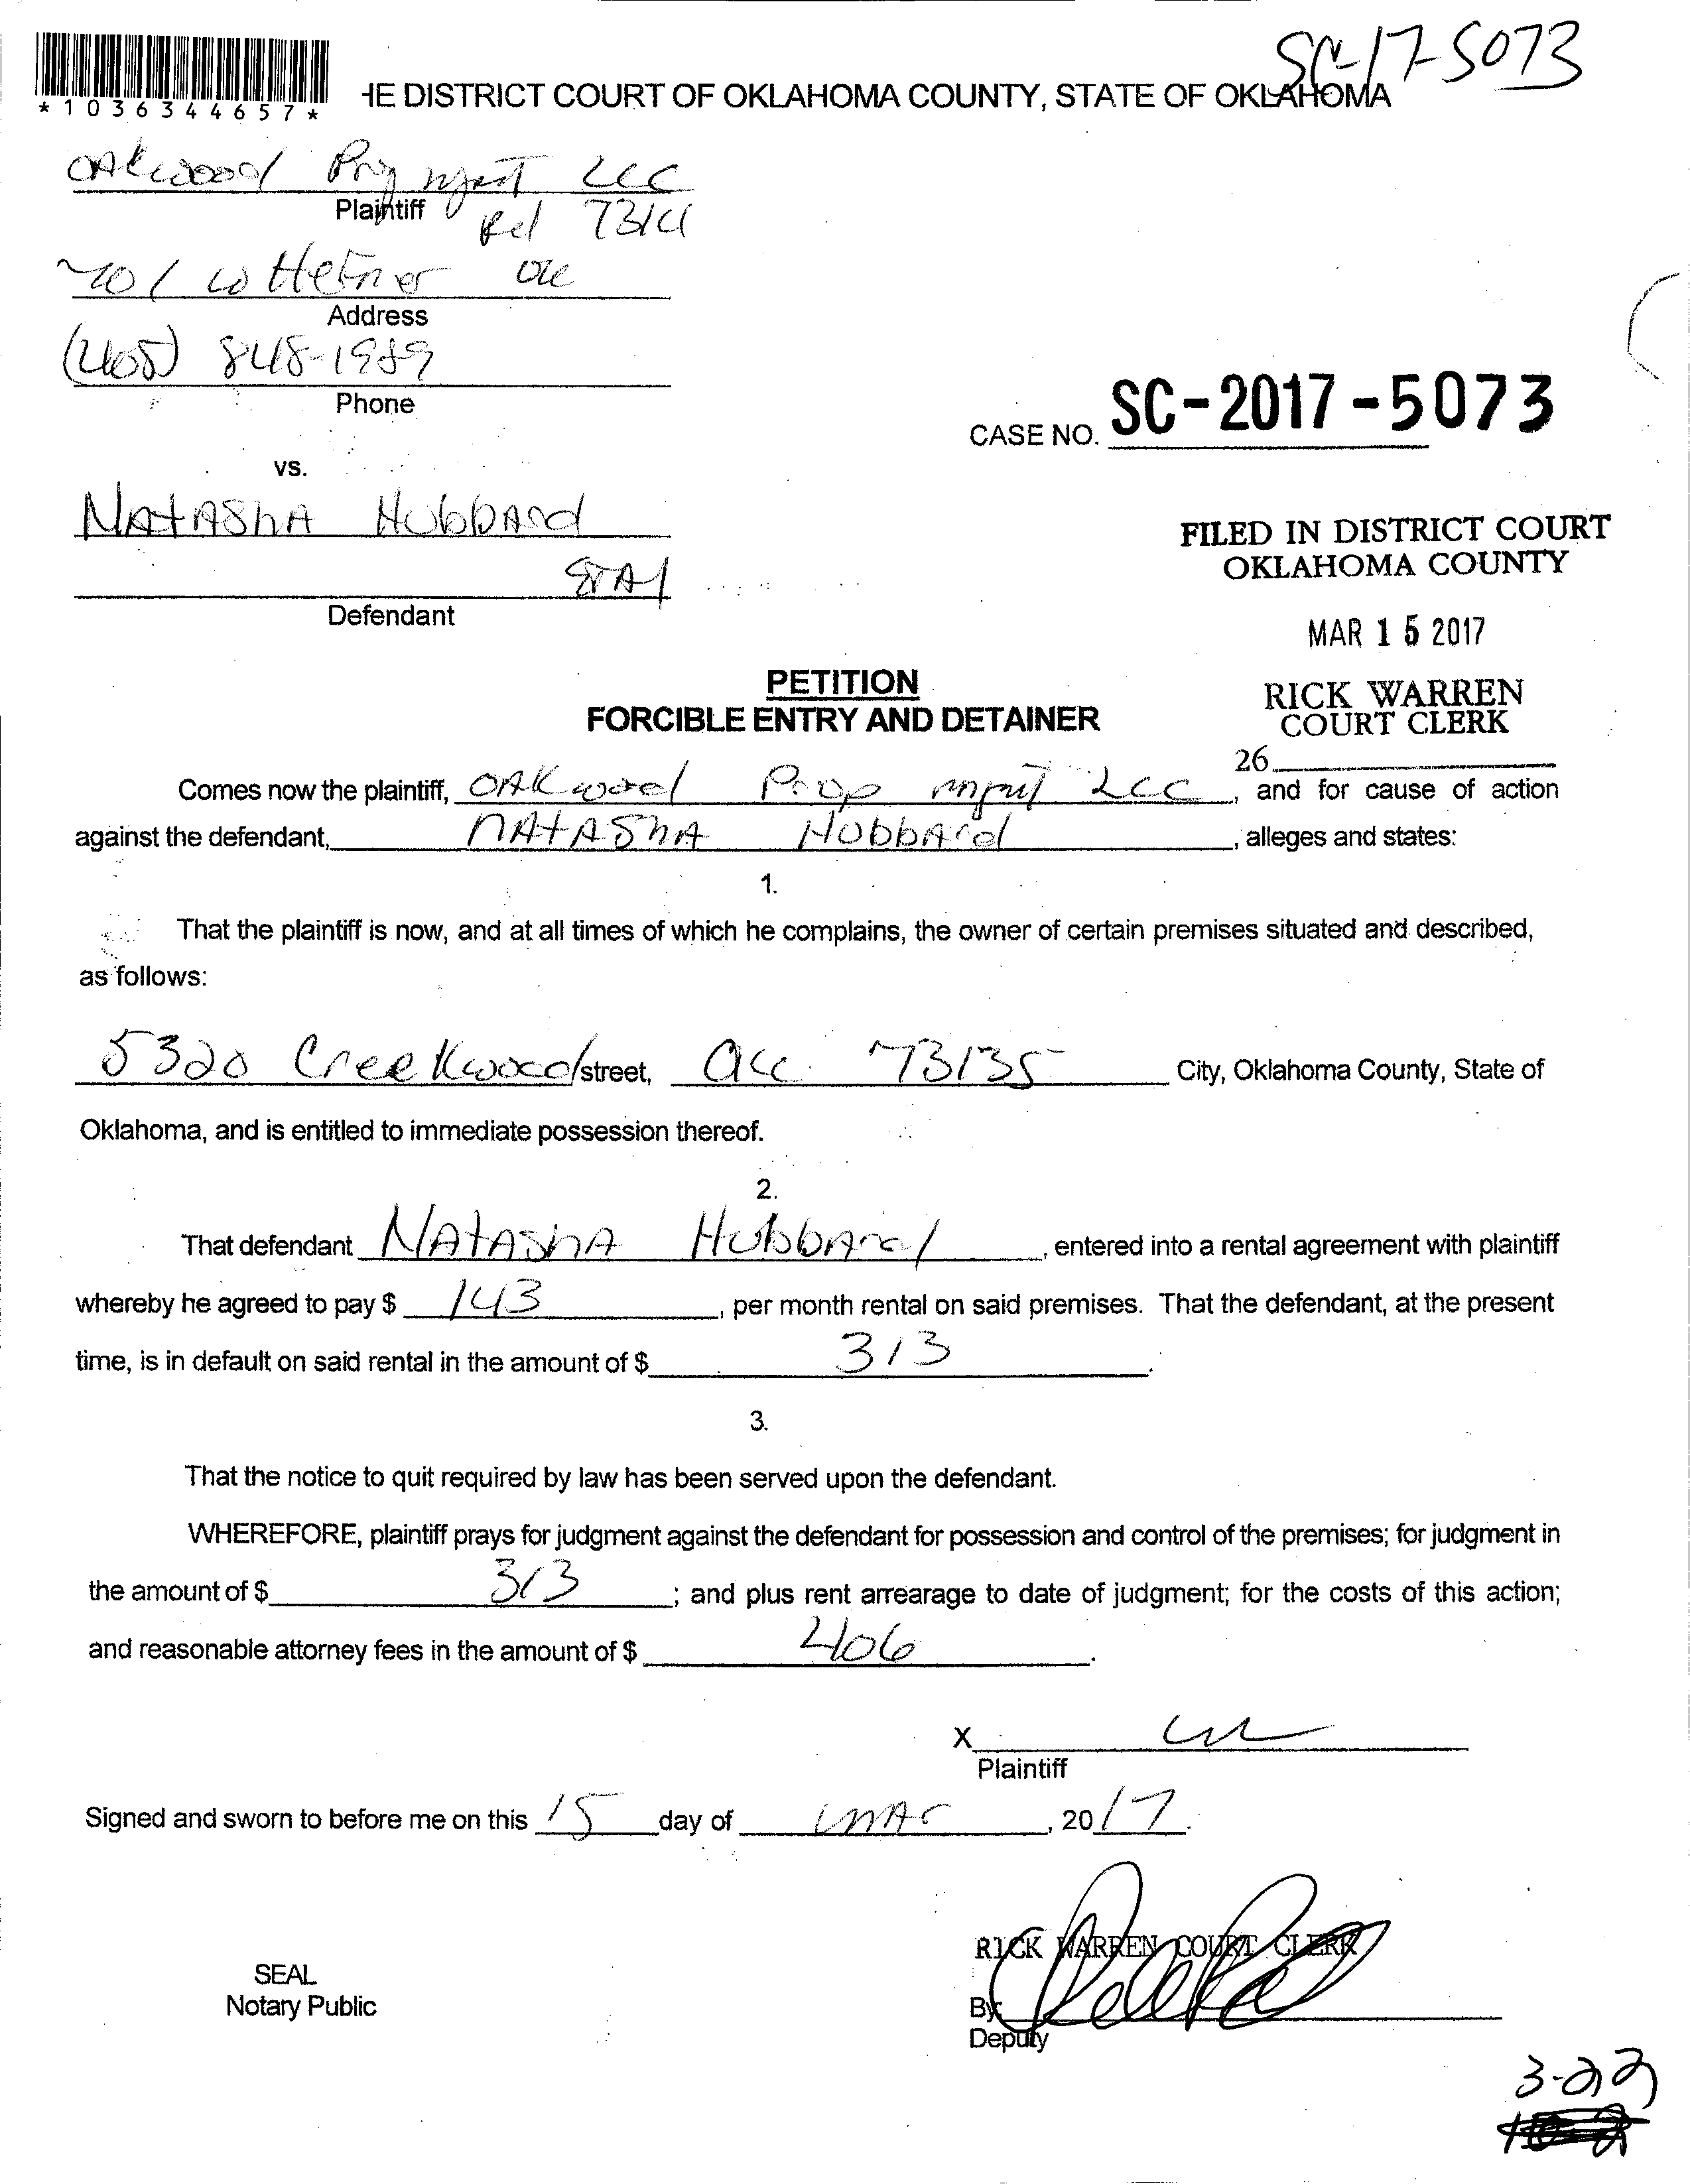 SC-17-5073
*1036344657*
HE DISTRICT COURT OF OKLAHOMA COUNTY, STATE OF OKLAHOMA
Oakwood Prop mgmt LLC
Plaintiff
Rd 73114
701 W Hefner OK
Address
(405) 848-1989
Phone
CASE NO. SC-2017-5073
vs.
NAtAShA HubbArd
FILED IN DISTRICT COURT
OKLAHOMA COUNTY
ETAl
Defendant
MAR 15 2017
PETITION
RICK WARREN
FORCIBLE ENTRY AND DETAINER
COURT CLERK
26
Comes now the plaintiff, OAKwood Prop mgmt LLC, and for cause of action
against the defendant, NAtAShA HubbArd, alleges and states:
1.
That the plaintiff is now, and at all times of which he complains, the owner of certain premises situated and described,
as follows:
5320 Creekwood street, OKC 73135 City, Oklahoma County, State of
Oklahoma, and is entitled to immediate possession thereof.
2.
That defendant NAtAShA HubbArd, entered into a rental agreement with plaintiff
whereby he agreed to pay $ 143, per month rental on said premises. That the defendant, at the present
time, is in default on said rental in the amount of $ 313.
3.
That the notice to quit required by law has been served upon the defendant.
WHEREFORE, plaintiff prays for judgment against the defendant for possession and control of the premises; for judgment in
the amount of $ 313; and plus rent arrearage to date of judgment; for the costs of this action;
and reasonable attorney fees in the amount of $ 406.
X
Plaintiff
Signed and sworn to before me on this 15 day of mAr, 2017.
RICK WARREN COURT CLERK
SEAL
Notary Public
By
Deputy
3-22